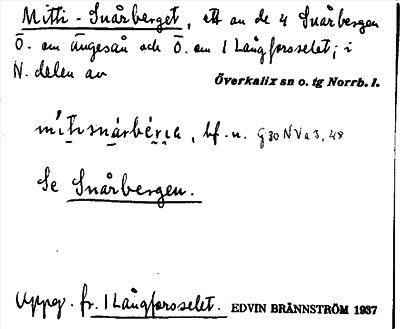 Mitti-Snårberget, ett av de 4 Snårbergen
Ö. om Ängesån och Ö. om 1 Långforsselet; i
N. delen av
Överkalix sn o. tg Norrb. l.
bf. n. G30 NV a 3, 48
Se Snårbergen.
Uppg. fr. 1 Långforsselet. EDVIN BRÄNNSTRÖM 1937